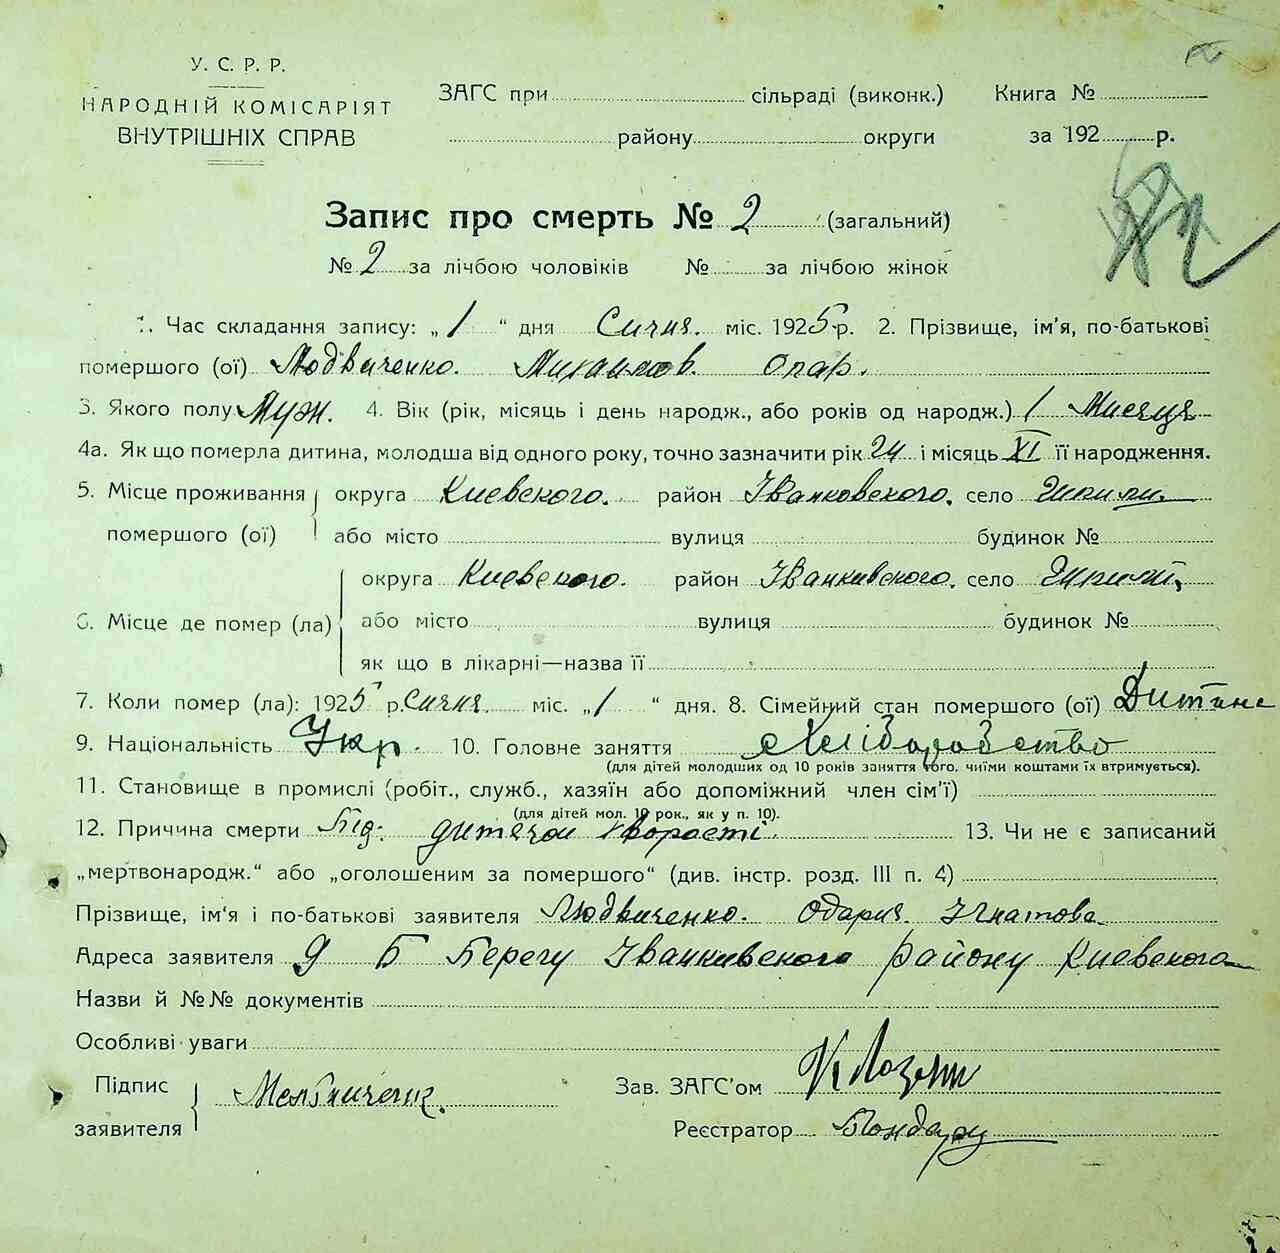 У. С. Р. Р.
НАРОДНІЙ КОМІСАРІЯТ
ВНУТРІШНІХ СПРАВ
ЗАГС при сільраді (виконк.) Книга №
району округи за 192 р.
Запис про смерть № 2 (загальний)
№ 2 за лічбою чоловіків № за лічбою жінок
1. Час складання запису: „ 1 “ дня Сичня. міс. 1925 р. 2. Прізвище, ім'я, по-батькові
помершого (ої) Людвиченко.
3. Якого полу Муж. 4. Вік (рік, місяць і день народж., або років од народж.) 1 Мисяця
4а. Як що померла дитина, молодша від одного року, точно зазначити рік 24 і місяць XI її народження.
5. Місце проживання округа Киевского. район Іванковского. село Шпили
помершого (ої) або місто вулиця будинок №
округа Киевского. район Іванкивского. село Шпили
6. Місце де помер (ла) або місто вулиця будинок №
як що в лікарні—назва її
7. Коли помер (ла): 1925 р. Сичня міс. „ 1 “ дня. 8. Сімейний стан помершого (ої) Дитина
9. Національність Укр. 10. Головне заняття Хліборобство
(для дітей молодших од 10 років заняття того, чиїми коштами їх втримується).
11. Становище в промислі (робіт., служб., хазяїн або допоміжний член сім'ї)
(для дітей мол. 10 рок., як у п. 10).
12. Причина смерти Від дитячои хворости. 13. Чи не є записаний
„мертвонародж.“ або „оголошеним за помершого“ (див. інстр. розд. III п. 4)
Прізвище, ім'я і по-батькові заявителя Людвиченко. Одария Игнатова
Адреса заявителя Д Б Берегу Іванкивского Району Киевского
Назви й №№ документів
Особливі уваги
Підпис
заявителя
Зав. ЗАГС'ом
Реєстратор Бондар